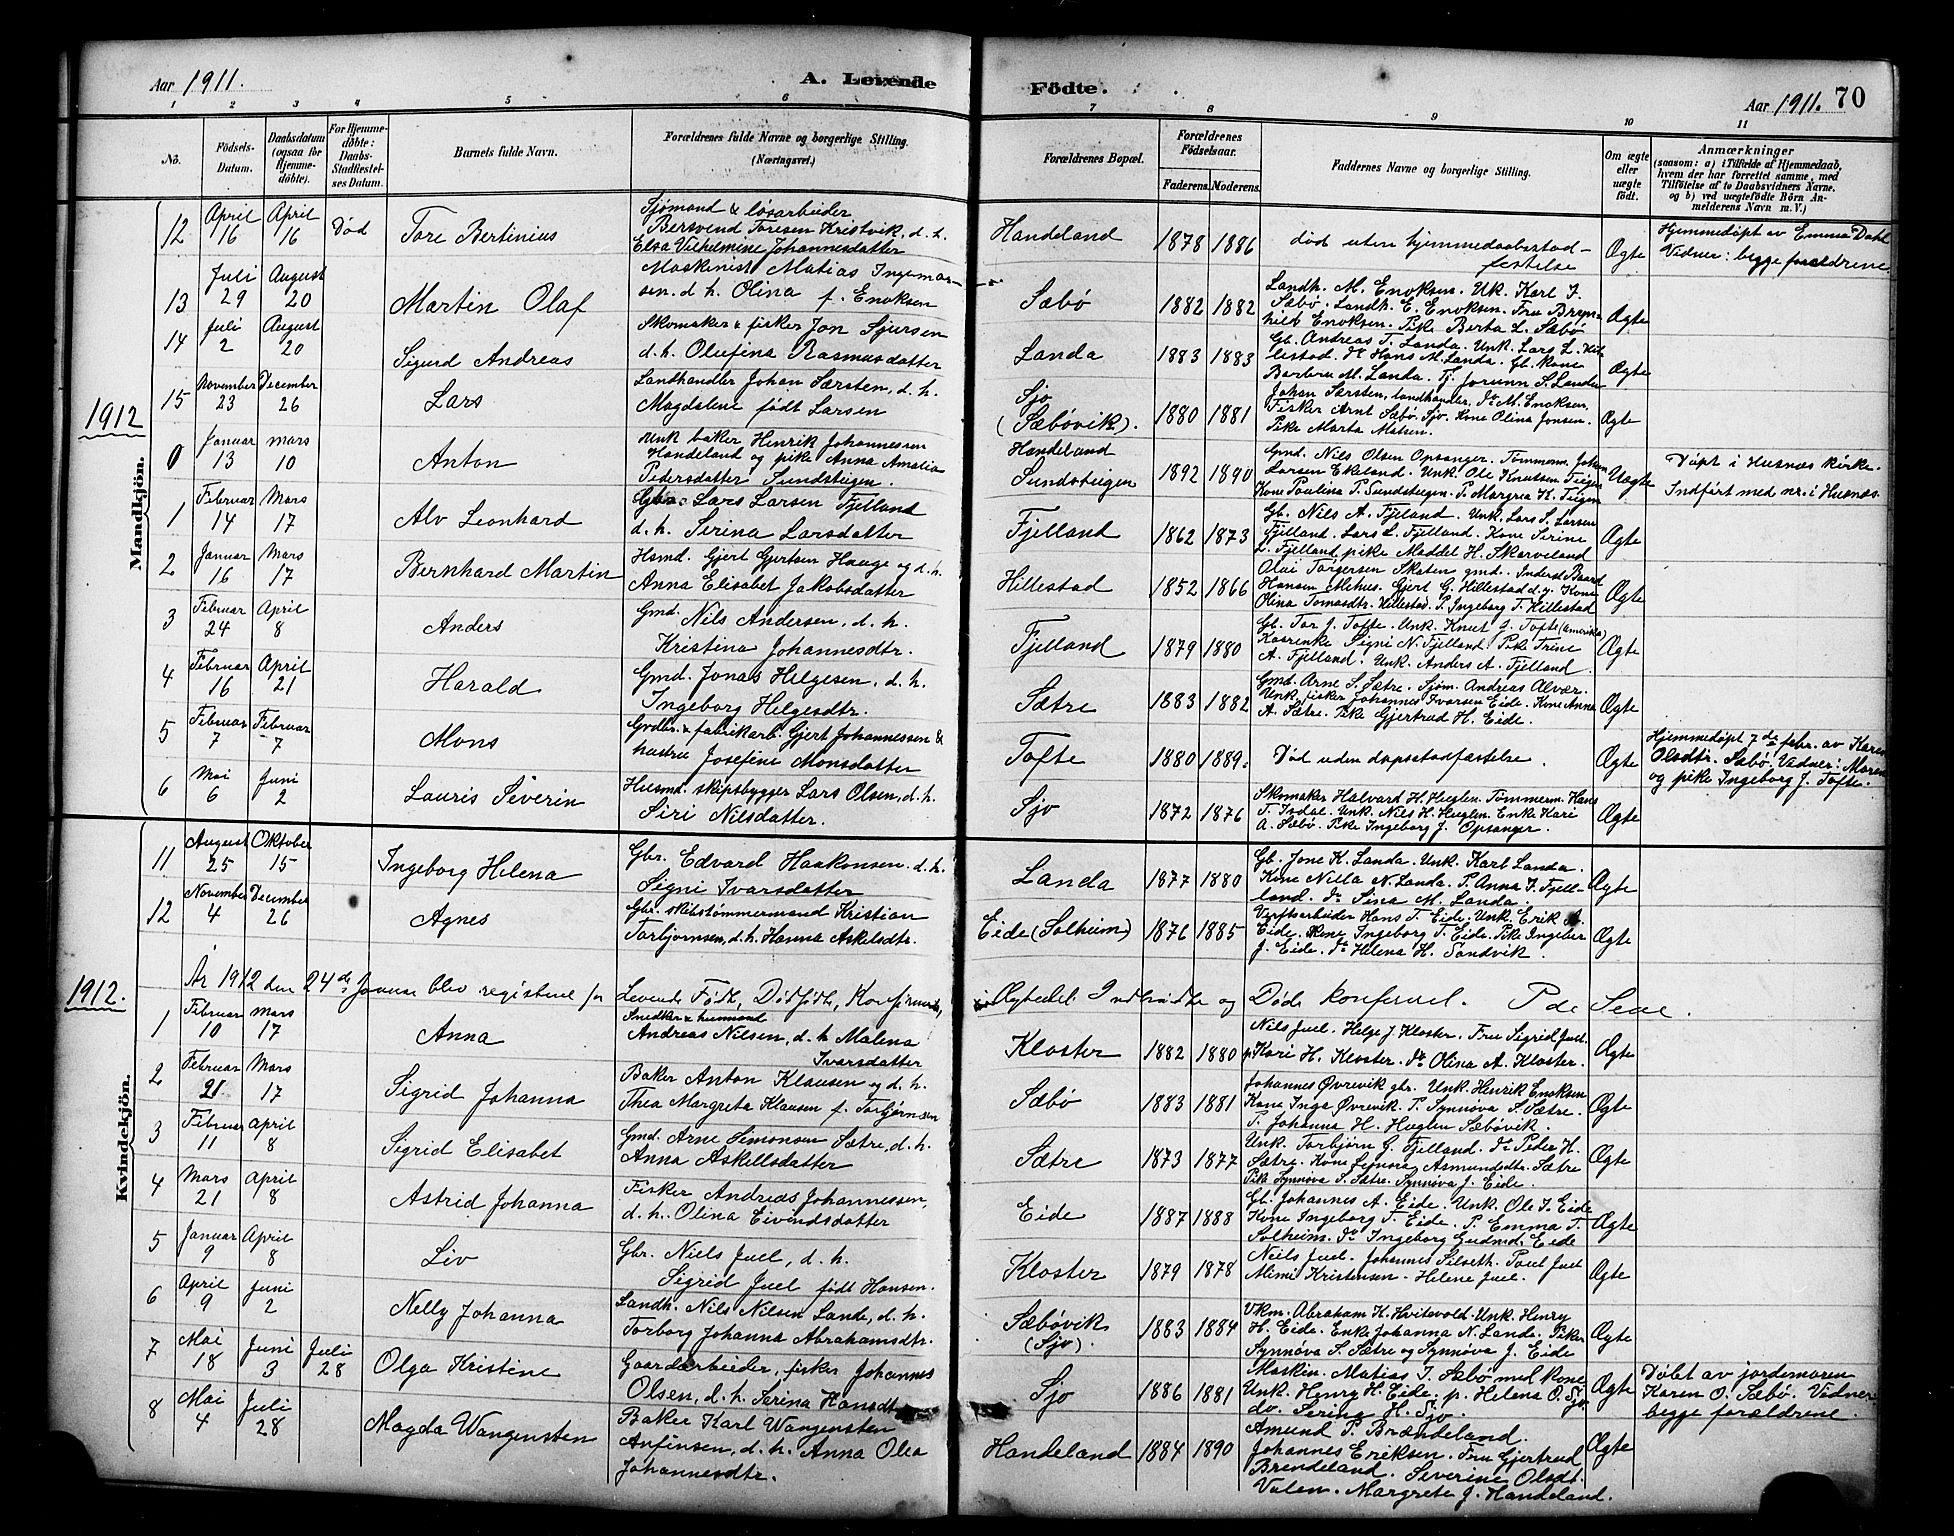 Aar 1911.
A. Levende Födte.
Aar 1911. 70
1 2 3 4 5 6 7 8 9 10 11
No.
Födsels-Datum.
Daabsdatum (ogsaa for Hjemmedöbte).
For Hjemmedöbte: Daabs-Stadfestelses Datum.
Barnets fulde Navn.
Forældrenes fulde Navne og borgerlige Stilling. (Næringsvei.)
Forældrenes Bopæl.
Forældrenes Födselsaar.
Faderens. Moderens.
Faddernes Navne og borgerlige Stilling.
Om ægte eller uægte födt.
Anmærkninger
(saasom: a) i Tilfælde af Hjemmedaab,
hvem der har forrettet samme, med
Tilföielse af to Daabsvidners Navne.
og b) ved uægtefödte Börn Anmelderens Navn m. V.)
Mandkjön.
12 April 16 April 16 Död Tore Bertinius
Sjömand & lösarbeider
Bersvend Toresen Kristvik, d. h.
Elsa Vilhelmine Johannesdatter
Handeland 1878 1886
död uten hjemmedaabsstadfestelse
Ægte
Hjemmedöpt av Emma Dahl
Vidner: begge forældrene.
13 Juli 29 August 20 Martin Olaf
Maskinist Matias Ingemarsen. d. h. Olina f. Enoksen
Sæbö 1882 1882
Landh. M. Enoksen. Uk. Karl J.
Sæbö. Landh. E. Enoksen. Fru Brynhild Enoksen. Pike Berta L. Sæbö
Ægte
14 Juli 2 August 20 Sigurd Andreas
Skomaker & fisker Jon Sjursen
d. h. Olufina Rasmusdatter
Landa 1883 1883
Gb. Andreas T. Landa. Unk. Lars L. Hillestad. do Hans M. Landa. Gb. kone
Barbru M. Landa. Tj. Jorunn S. Landa
Ægte
15 November 23 December 26 Lars
Landhandler Johan Særsten, d. h.
Magdalene födt Larsen
Sjo (Sæbövik). 1880 1881
Johan Særsten, landhandler, do M. Enoksen.
Fisker Arnt Sæbö. Sjo. Kone Olina Jonsen.
Pike Marta Matsen.
Ægte
1912
0 Januar 13 mars 10 Anton
Unk baker Henrik Johannessen
Handeland og pike Anna Amalia
Pedersdatter Sundsteigen.
Handeland Sundsteigen 1892 1890
Gmd. Nils Olsen Opsanger. Tömmerm. Johan
Larsen Ekeland. Unk Ole Knutsen Teigen
Kone Paulina P. Sundsteigen. P. Margrea K. Teigen
Uægte
Döpt i Husnæs kirke.
Indfört med nr. i Husnæs
1 Februar 14 Mars 17 Alv Leonhard
Gbr. Lars Larsen Fjelland
d. h. Serina Larsdatter
Fjelland 1862 1873
Gb. Nils A. Fjelland. Unk. Lars S. Larsen
Fjelland. Lars L. Fjelland. Kone Serine
L. Fjelland, pike Maddel H. Skarveland
Ægte
2 Januar 16 Mars 17 Bernhard Martin
Hsmd. Gjert Gjertsen Hauge og d. h.
Anna Elisabet Jakobsdatter
Hillestad 1852 1866
Olai Torgersen Skaten gmd. Inderst Baard
Hansen Mehus. Gjert G. Hillestad d.y. Kone
Olina Tomasdtr. Hillestad. P. Ingeborg T. Hillestad
Ægte
3 Februar 24 April 8 Anders
Gmd. Nils Andersen, d. h.
Kristina Johannesdtr.
Fjelland 1879 1880
Gb. Tor J. Tofte. Unk. Knut J. Tofte (Amerika)
Signi N. Fjelland. Pike Trine
A. Fjelland. Unk. Anders A. Fjelland.
Ægte
4 Februar 16 April 21 Harald
Gmd. Jonas Helgesen, d. h.
Ingeborg Helgesdtr.
Sætre 1883 1882
Gmd. Arne S. Sætre. Sjöm. Andreas Alvær.
Unk. fisker Johannes Ivarsen Eide. Kone Anna
A. Sætre. Pike Gjertrud H. Eide.
Ægte
5 Februar 7 Februar 7 Mons
Grdbr. & fabrikarb. Gjert Johannessen &
hustru Josefine Monsdatter
Tofte 1880 1889.
Död uden dapsstadfæstelse.
Ægte
Hjemmedöpt 7de febr. av Karen
Olsdtr. Sæbö. Vidner: Maren
og pike Ingeborg J. Tofte.
6 Mai 6 Juni 2 Lauris Severin
Husmd. skipsbygger Lars Olsen, d. h.
Siri Nilsdatter.
Sjo 1872 1876
Skomaker Halvard H. Huglen. Tömmerm. Hans
T. Indal. Unk. Nils H. Huglen. Enke Kari
A. Sæbö. Pike Ingeborg J. Opsanger.
Ægte
Kvindekjön.
11 August 25 Oktober 15 Ingeborg Helena
Gbr. Edvard Haakonsen. d. h.
Signi Ivarsdatter
Landa 1877 1880
Gb. Jone K. Landa. Unk. Karl Landa.
Kone Nilla N. Landa. P. Anna J. Fjelland. do Sina M. Landa.
Ægte
12 November 4 December 26 Agnes
Gbr. skibstömmermand Kristian
Torbjornsen, d. h. Hanna Askelsdtr.
Eide (Solheim) 1876 1885
Verftsarbeider Hans T. Eide. Unk. Erik A.
Eide. Kone Ingeborg T. Eide. Pike Ingeborg
J. Eide. do Helena H. Sandvik.
Ægte
1912.
År 1912 den 24de Januar blev registrene for Levende Födte, Dödfödte, Konfirmerede, i Ægteskab Indtrådte og Döde konfereret.
1 Februar 10 Mars 17 Anna
Snedker &
Andreas Nilsen, d. h. Malena
Ivarsdatter
Kloster 1882 1880
Nils Juel. Helge J. Kloster. Fru Sigrid Juel.
p. Kari H. Kloster. do Olina A. Kloster.
Ægte
2 Februar 21 Mars 17 Sigrid Johanna
Baker Anton Klausen og d. h.
Thea Margreta Klausen f. Torbjörnsen
Sæbö 1883 1881
Johannes Övrevik gbr. Unk. Henrik Enoksen
Kone Inga Övrevik. P. Synnöva S. Sætre.
P. Johanna H. Huglen Sæbövik.
Ægte
3 Februar 11 April 8 Sigrid Elisabet
Gmd. Arne Simonsen Sætre, d. h.
Anna Askellsdatter
Sætre 1873 1877
Unk. Torbjörn G. Fjelland. do Peder H.
Sætre. Kone Synöra Asmundsdtr. Sætre
Pike Synnöva S. Sætre. Synnöva J. Eide.
Ægte
4 Mars 21 April 8 Astrid Johanna
Fisker Andreas Johannessen,
d. h. Olina Eivindsdatter
Eide 1887 1888
Gb. Johannes A. Eide. Unk. Ole I. Eide
Kone Ingeborg T. Eide. P. Emma T.
Solheim. do Ingeborg Gudmd. Eide
Ægte
5 Januar 9 April 8 Liv
Gbr. Niels Juel, d. h.
Sigrid Juel födt Hansen.
Kloster 1879 1878
Neils Juel. Johannes Silseth. Poul Juel
Mimi Kristensen. Helene Juel.
Ægte
6 April 9 Juni 2 Nelly Johanna
Landh. Nils Nilsen Lande, d. h.
Torborg Johanna Abrahamsdtr.
Sæbövik (Sjo). 1883 1884
Vkm. Abraham K. Hvitevold. Unk. Henry
H. Eide. Enke Johanna N. Lande. Piker
Synnöva S. Sætre og Synnöva J. Eide
Ægte
7 Mai 18 Juni 3 Juli 28 Olga Kristine
Gaardarbeider, fisker Johannes
Olsen, d. h. Serina Hansdtr.
Sjo 1886 1881
Maskin. Matias I. Sæbö med kone
Unk. Henry H. Eide. p. Helena O. Sjo
do. Serina H. Sjo.
Ægte
Döbt av jordemoren
Karen O. Sæbö. Vidner
begge forældrene.
8 Mai 4 Juli 28 Magda Wangensten
Baker Karl Wangensten
Anfinsen, d. h. Anna Olea
Johannesdtr.
Handeland 1884 1890
Amund P. Brændeland.
Johannes Eriksen. Fru Gjertrud
Brendeland. Severine Olsdt.
Valen. Margrete J. Handeland.
Ægte